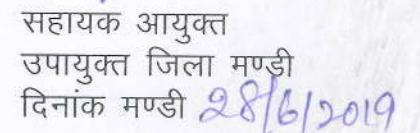 सहायक आयुक्त
उपायुक्त जिला मण्डी
दिनांक मण्डी 28/6/2019